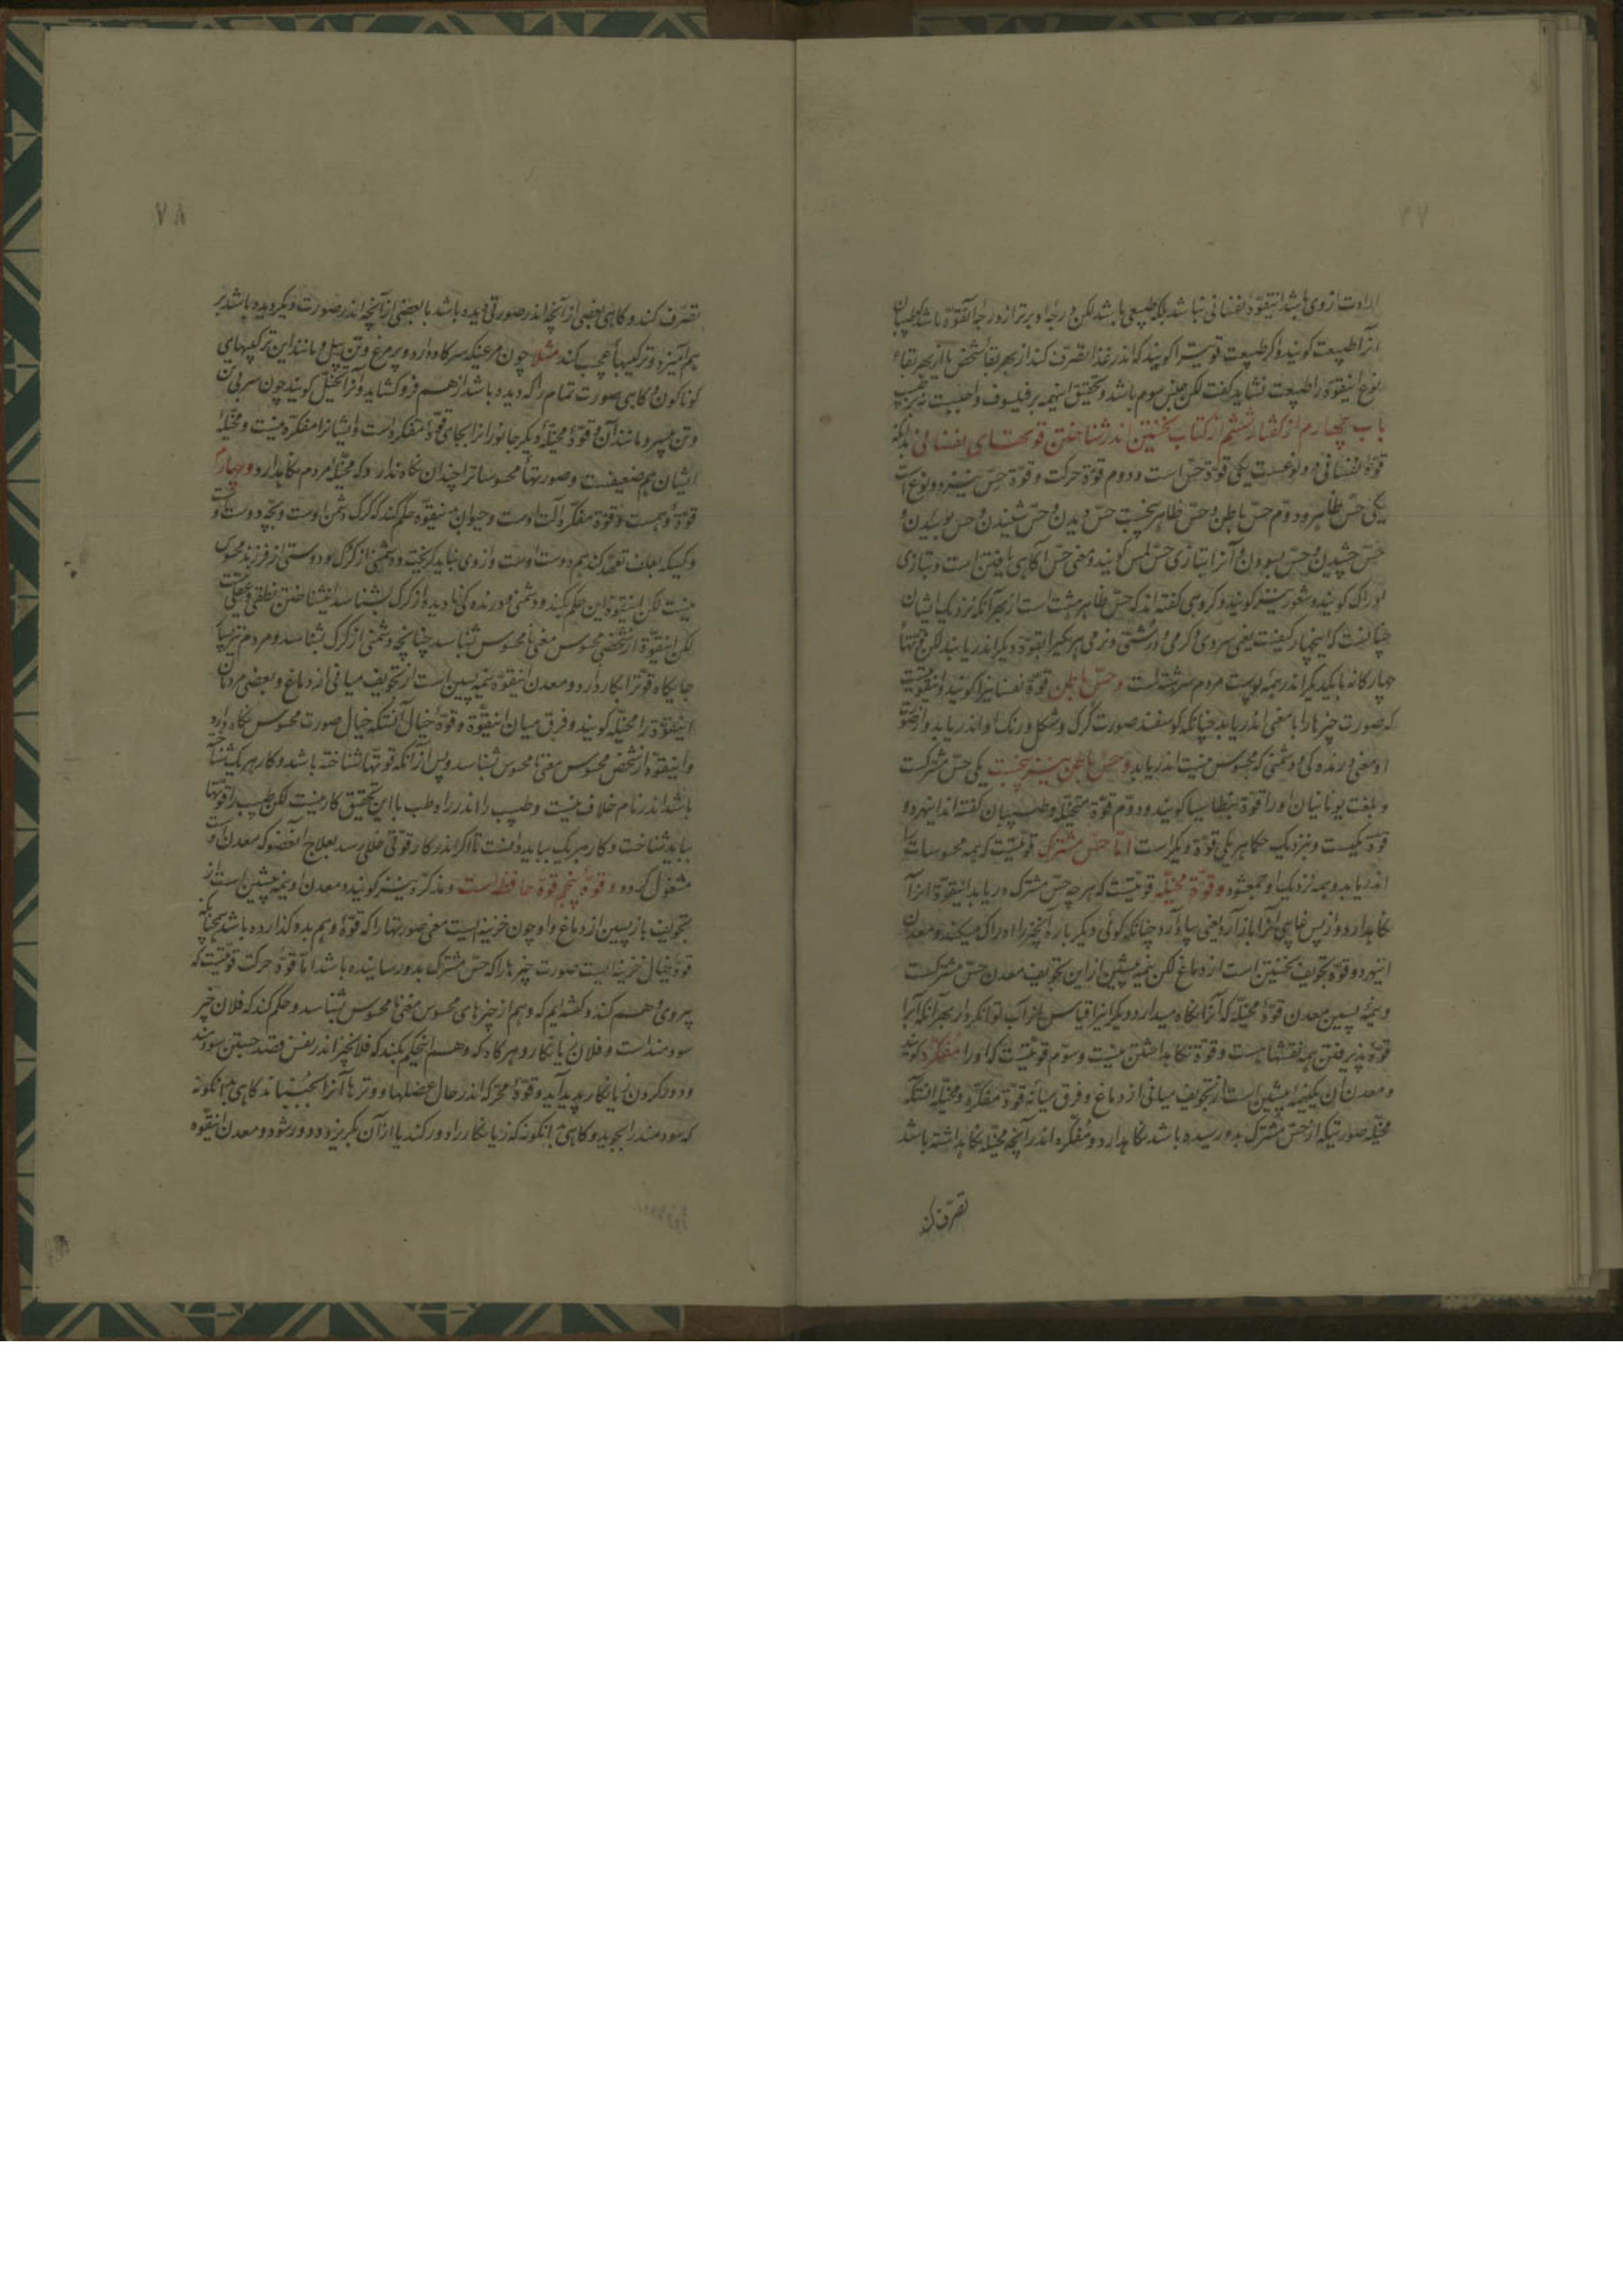 ارادت از وی باشد اینقوة نفسانی نباشد بلکه طبیعی باشد لکن درجه او برتر از درجه آنقوة باشد که طبیبان
آنرا طبیعت کویند و اکر طبیعت قوتیرا کویند که اندر غذا تصرف کند از بهر بقاء شخص یا از بهر بقاء
نوع اینقوة را طبیعت نشاید کفت لکن جنس سوم باشد و تحقیق اینهمه بر فیلسوف واجبست نه بر طبیب
باب چهارم از کفتار ششم از کتاب نخستین اندر شناختن قوتهای نفسانی بدانکه
قوة نفسانی دو نوعست یکی قوة حس است و دوم قوة حرکت و قوة حس نیز دو نوع است
یکی حس ظاهر و دوم حس باطن و حس ظاهر پنجست حس دیدن و حس شنیدن و حس بوییدن و
حس چشیدن و حس بسودن و آنرا بتازی حس لمس کویند و معنی حس آکاهی یافتن است و بتازی
ادراک کویند و شعور نیز کویند و کروهی کفته اند که حس ظاهر هشت است از بهر آنکه نزدیک ایشان
چنانست که اینچهار کیفیت یعنی سردی و کرمی و درشتی و نرمی هر یکیرا بقوة دیکر اندر یابند لکن قوتها
چهارکانه با یکدیکر اندر همه پوست مردم سرشته است و حس باطن قوة نفسانیرا کویند و اینقوتیست
که صورت چیزها را با معنی اندر یابد چنانکه کوسفند صورت کرک و شکل و رنک او اندر یابد و از صورت
او معنی درنده کی و دشمنی که محسوس نیست اندر یابد و حس باطن نیز پنجست یکی حس مشترکست
و بلغت یونانیان او را قوة بنطاسیا کویند و دوم قوة متخیله و طبیبان کفته اند اینهر دو
قوة یکیست و بنزدیک حکما هر یکی قوة دیکر است اما حس مشترک قوتیست که همه محسوسات را
اندر یابد و همه نزدیک او جمع شود و قوة مخیله قوتیست که هر چه حس مشترک دریابد اینقوة آنرا
نکاهدارد و از پس غایبی آنرا باز آرد یعنی بیاد آرد چنانکه کوئی دیکر باره آنچیز را ادراک میکند و معدن
اینهر دو قوة تجویف نخستین است از دماغ لکن نیمه پیشین از این تجویف معدن حس مشترکست
و نیمه پسین معدن قوة مخیله که آنرا نکاه میدارد و دیکر اینرا قیاس از آب توان کرد از بهر آنکه آبرا
قوة پذیرفتن همه نقشها هست و قوة نکاهداشتن نیست و سوم قوتیست که او را مفکره کویند
و معدن آن یکنیمه پیشین است از تجویف میانی از دماغ و فرق میانه قوة مفکره و مخیله آنستکه
مخیله صورتیکه از حس مشترک بدو رسیده باشد نکاهدارد و مفکره اندر آنچه مخیله نکاهداشته باشد
تصرف کند
۷۸
تصرف کند و کاهی بعضی از آنچه اندر صورتی دیده باشد با بعضی از آنچه اندر صورت دیکر دیده باشد بر
هم آمیزد و ترکیبهاء عجب کند مثلا چون مرغیکه سر کاو دارد و پر مرغ و تن پیل و مانند این ترکیبهای
کوناکون و کاهی صورت تمام را که دیده باشد از هم فرو کشاید و آنرا تخیل کویند چون سر بی تن
و تن بیسر و مانند آن و قوة مخیله دیکر جانورانرا بجای قوة مفکره است و ایشانرا مفکره نیست و مخیله
ایشان هم ضعیفست و صورتهاء محسوساترا چندان نکاه ندارد که مخیله مردم نکاهدارد و چهارم
قوة وهمست و قوة مفکره آلت اوست و حیوان باینقوة حکم کند که کرک دشمن اوست و بچه دوست او
و کسیکه بعلف تعهد کند هم دوست اوست و از وی نباید کریخت و دشمنی از کرک و دوستی از فرزند محسوس
نیست لکن اینقوة این حکم بکند و دشمنی و درنده کی نادیده از کرک بشناسد اینشناختن نطقی و عقلی نیست
لکن اینقوة از شخصی محسوس معنی نامحسوس شناسد چنانچه دشمنی از کرک بشناسد و مردم نیز بسیار
جایکاه قوترا بکار دارد و معدن اینقوة نیمه پسین است از تجویف میانی از دماغ و بعضی مردمان
اینقوة را مخیله کویند و فرق میان اینقوة و قوة خیال آنستکه خیال صورت محسوس نکاه دارد
و اینقوة از شخص محسوس معنی نامحسوس شناسد و پس از آنکه قوتها شناخته باشد و کار هر یک
باشد اندر نام خلاف نیست و طبیب را اندر راه طب با این تحقیق کار نیست لکن طبیب را قوتها
بباید شناخت و کار هر یک بباید دانست تا اکر اندر کار قوتی خللی رسد بعلاج آنعضو که معدن اوست
مشغول کردد و قوة پنجم قوة حافظه است و مذکره نیز کویند و معدن او نیمه پیشین است از
تجویف بازپسین از دماغ و او چون خزینه ایست معنی صورتها را که قوة وهم بدو کذارده باشد همچنانکه
قوة خیال خزینه ایست صورت چیزها را که حس مشترک بدو رسانیده باشد اما قوة حرکت قوتیست که
پیروی وهم کند و کفته ایم که وهم از چیزهای محسوس معنی نامحسوس شناسد و حکم کند که فلان چیز
سودمند است و فلان زیانکار و هر کاه که وهم اینحکم بکند که فلانچیز اندر نفس قصد جستن سودمند
و دور کردن زیانکار پدید آید و قوة محرکه اندر حال عضلها و وترها آنرا بجنباند کاهی بآنکونه
که سودمند را بجوید و کاهی بآنکونه که زیانکار را دور کند یا از آن بکریزد و دور شود و معدن اینقوه